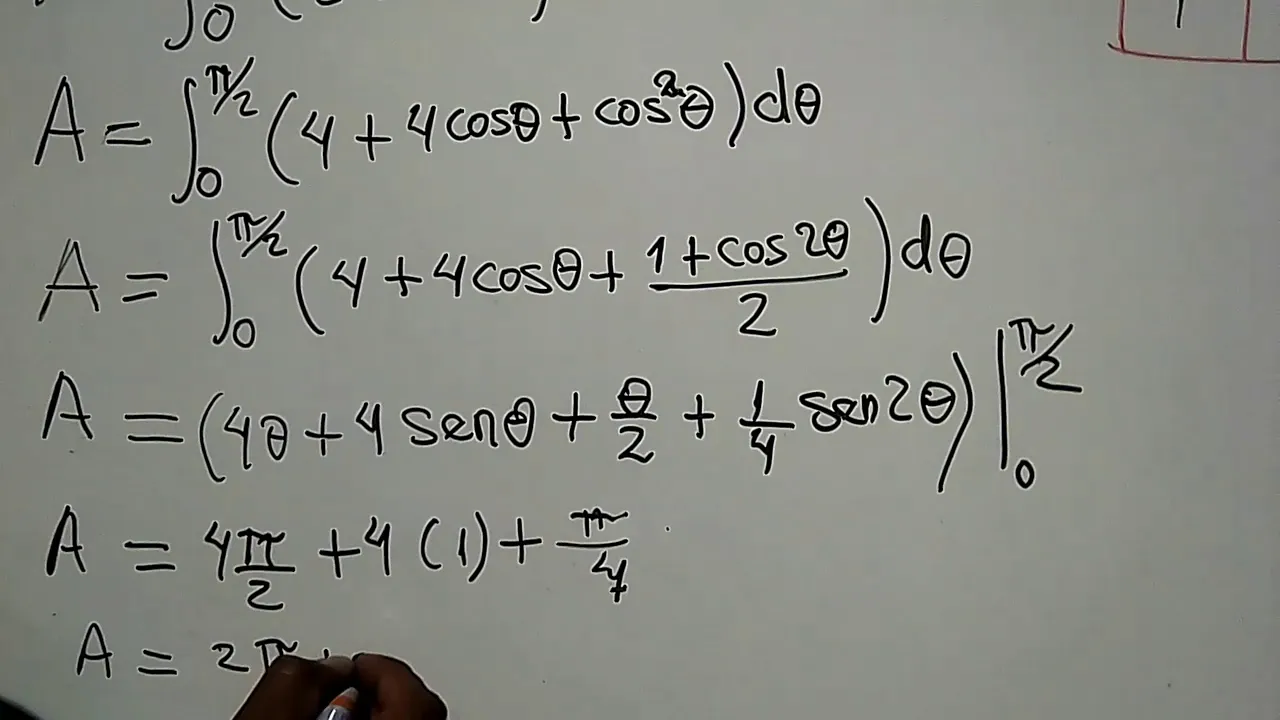 ∫0
A = ∫0^π/2 (4 + 4cosθ + cos²θ) dθ
A = ∫0^π/2 (4 + 4cosθ + (1 + cos2θ)/2) dθ
A = (4θ + 4senθ + θ/2 + 1/4 sen2θ) |0^π/2
A = 4π/2 + 4(1) + π/4
A = 2π +